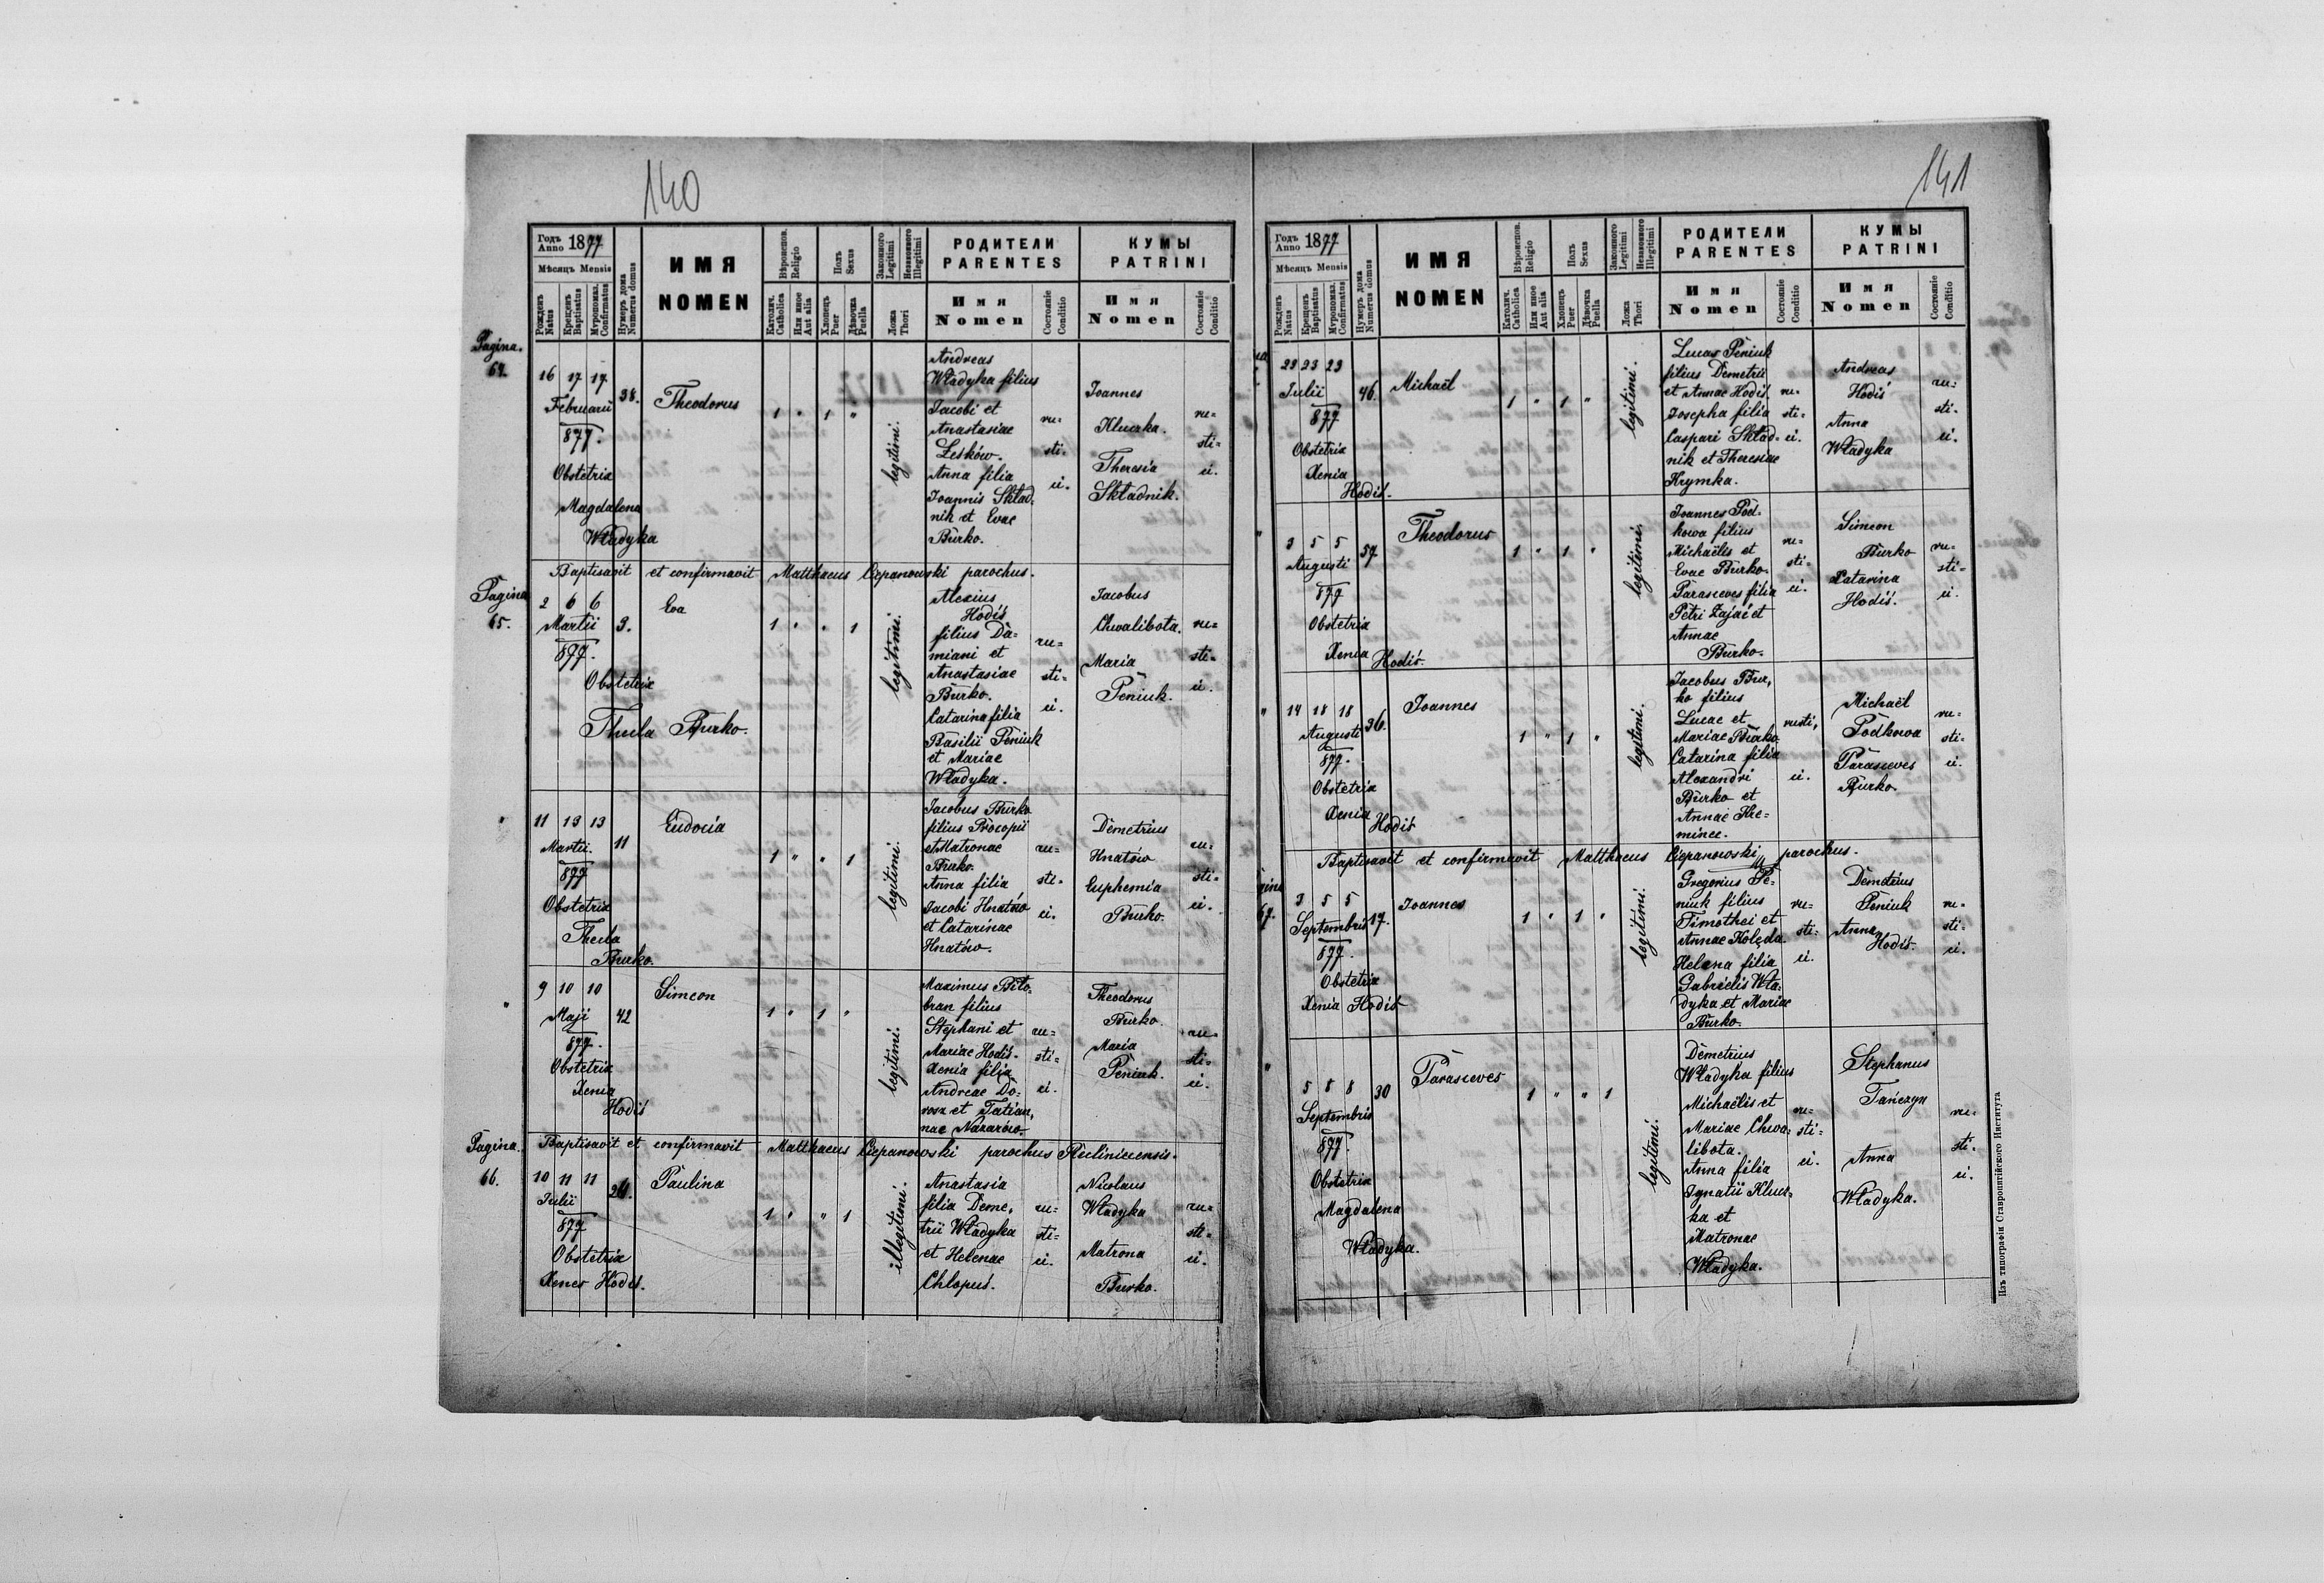 140
Годъ
Anno 1877
Мѣсяцъ Mensis
Рожденъ
Natus
Крещенъ
Baptisatus
Муропомаз.
Confirmatus
Нумеръ дома
Numerus domus
ИМЯ
NOMEN
Вѣроиспов.
Religio
Католич.
Catholica
Или иное
Aut alia
Полъ
Sexus
Хлопецъ
Puer
Дѣвочка
Puella
Законного
Legitimi
Незаконного
Illegitimi
Ложа
Thori
РОДИТЕЛИ
PARENTES
Имя
Nomen
Состояніе
Conditio
КУМЫ
PATRINI
Имя
Nomen
Состояніе
Conditio
Pagina.
64.
16 17 17
Februarii
877.
Obstetrix
Magdalena
Władyka
38.
Theodorus
1 " 1 "
legitimi.
Andreas
Władyka filius
Jacobi et
Anastasiae
Leśków.
Anna filia
Joannis Skład-
nik et Evae
Burko.
ru=
sti=
ci.
Joannes
Kluczka.
Theresia
Składnik.
ru=
sti=
ci.
Baptisavit et confirmavit Matthaeus Ciepanowski parochus.
Pagina
65.
2 6 6
Martii
877.
Obstetrix
Thecla Burko.
9.
Eva
1 " " 1
legitimi.
Alexius
Hodiś
filius Da=
miani et
Anastasiae
Burko.
Catarina filia
Basilii Peniuk
et Mariae
Władyka.
ru=
sti=
ci.
Jacobus
Chwalibota.
Maria
Peniuk.
ru=
sti=
ci.
"
11 13 13
Martii.
877
Obstetrix
Thecla
Burko.
11
Eudocia
1 " " 1
legitimi.
Jacobus Burko
filius Procopii
et Matronae
Burko.
Anna filia
Jacobi Hnatów
et Catarinae
Hnatów.
ru=
sti=
ci.
Demetrius
Hnatów
Euphemia
Burko.
ru=
sti=
ci.
"
9 10 10
Maji
877.
Obstetrix
Xenia
Hodiś
42
Simeon
1 " 1 "
legitimi.
Maximus Biło=
bran filius
Stephani et
Mariae Hodiś.
Xenia filia
Andreae Do=
rosz et Tatian,
nae Nazarów.
ru=
sti=
ci.
Theodorus
Burko.
Maria
Peniuk.
ru=
sti=
ci.
Pagina.
66.
Baptisavit et confirmavit Matthaeus Ciepanowski parochus Recliniecensis.
10 11 11
Julii
877
Obstetrix
Xenes Hodiś.
24.
Paulina
1 " " 1
illegitimi.
Anastasia
filia Deme,
trii Władyka
et Helenae
Chlopus.
ru=
sti=
ci.
Nicolaus
Władyka
Matrona
Burko.
ru=
sti=
ci.
141
Годъ
Anno 1877
Мѣсяцъ Mensis
Рожденъ
Natus
Крещенъ
Baptisatus
Муропомаз.
Confirmatus
Нумеръ дома
Numerus domus
ИМЯ
NOMEN
Вѣроиспов.
Religio
Католич.
Catholica
Или иное
Aut alia
Полъ
Sexus
Хлопецъ
Puer
Дѣвочка
Puella
Законного
Legitimi
Незаконного
Illegitimi
Ложа
Thori
РОДИТЕЛИ
PARENTES
Имя
Nomen
Состояніе
Conditio
КУМЫ
PATRINI
Имя
Nomen
Состояніе
Conditio
23 23 23
Julii
877
Obstetrix
Xenia
Hodiś.
46.
Michaël
1 " 1 "
legitimi.
Lucas Peniuk
filius Demetrii
et Annae Hodiś.
Josepha filia
Caspari Skład=
nik et Theresiae
Krymka.
ru=
sti=
ci.
Andreas
Hodiś
Anna
Władyka
ru=
sti=
ci.
"
3 5 5
Augusti
877
Obstetrix
Xenia
Hodiś.
57
Theodorus
1 " 1 "
legitimi.
Joannes Pod=
kowa filius
Michaëlis et
Evae Burko.
Parasceves filia
Petri Zając et
Annae
Burko.
ru=
sti=
ci.
Simeon
Burko
Catarina
Hodiś.
ru=
sti=
ci.
"
14 18 18
Augusti
877.
Obstetrix
Xenia
Hodiś
36.
Joannes
1 " 1 "
legitimi.
Jacobus Bur,
ko filius
Lucae et
Mariae Burko.
Catarina filia
Alexandri
Burko et
Annae Kre=
miniec.
rusti,
ci.
Michaël
Podkowa
Parasceves
Burko
ru=
sti=
ci.
Baptisavit et confirmavit Matthaeus Ciepanowski parochus.
67.
3 5 5
Septembris
877.
Obstetrix
Xenia Hodiś
17.
Joannes
1 " 1 "
legitimi.
Gregorius Pe=
niuk filius
Timothei et
Annae Kolęda.
Helena filia
Gabrielis Wła=
dyka et Mariae
Burko.
ru=
sti=
ci.
Demetrius
Peniuk
Anna
Hodiś.
ru=
sti=
ci.
"
5 8 8
Septembris
877
Obstetrix
Magdalena
Władyka.
30
Parasceves
1 " " 1
legitimi.
Demetrius
Władyka filius
Michaëlis et
Mariae Chwa=
libota.
Anna filia
Ignatii Klucz=
ka et
Matronae
Władyka.
ru=
sti=
ci.
Stephanus
Tańczyn
Anna
Władyka.
ru=
sti=
ci.
Изъ типографіи Ставропигійского Института